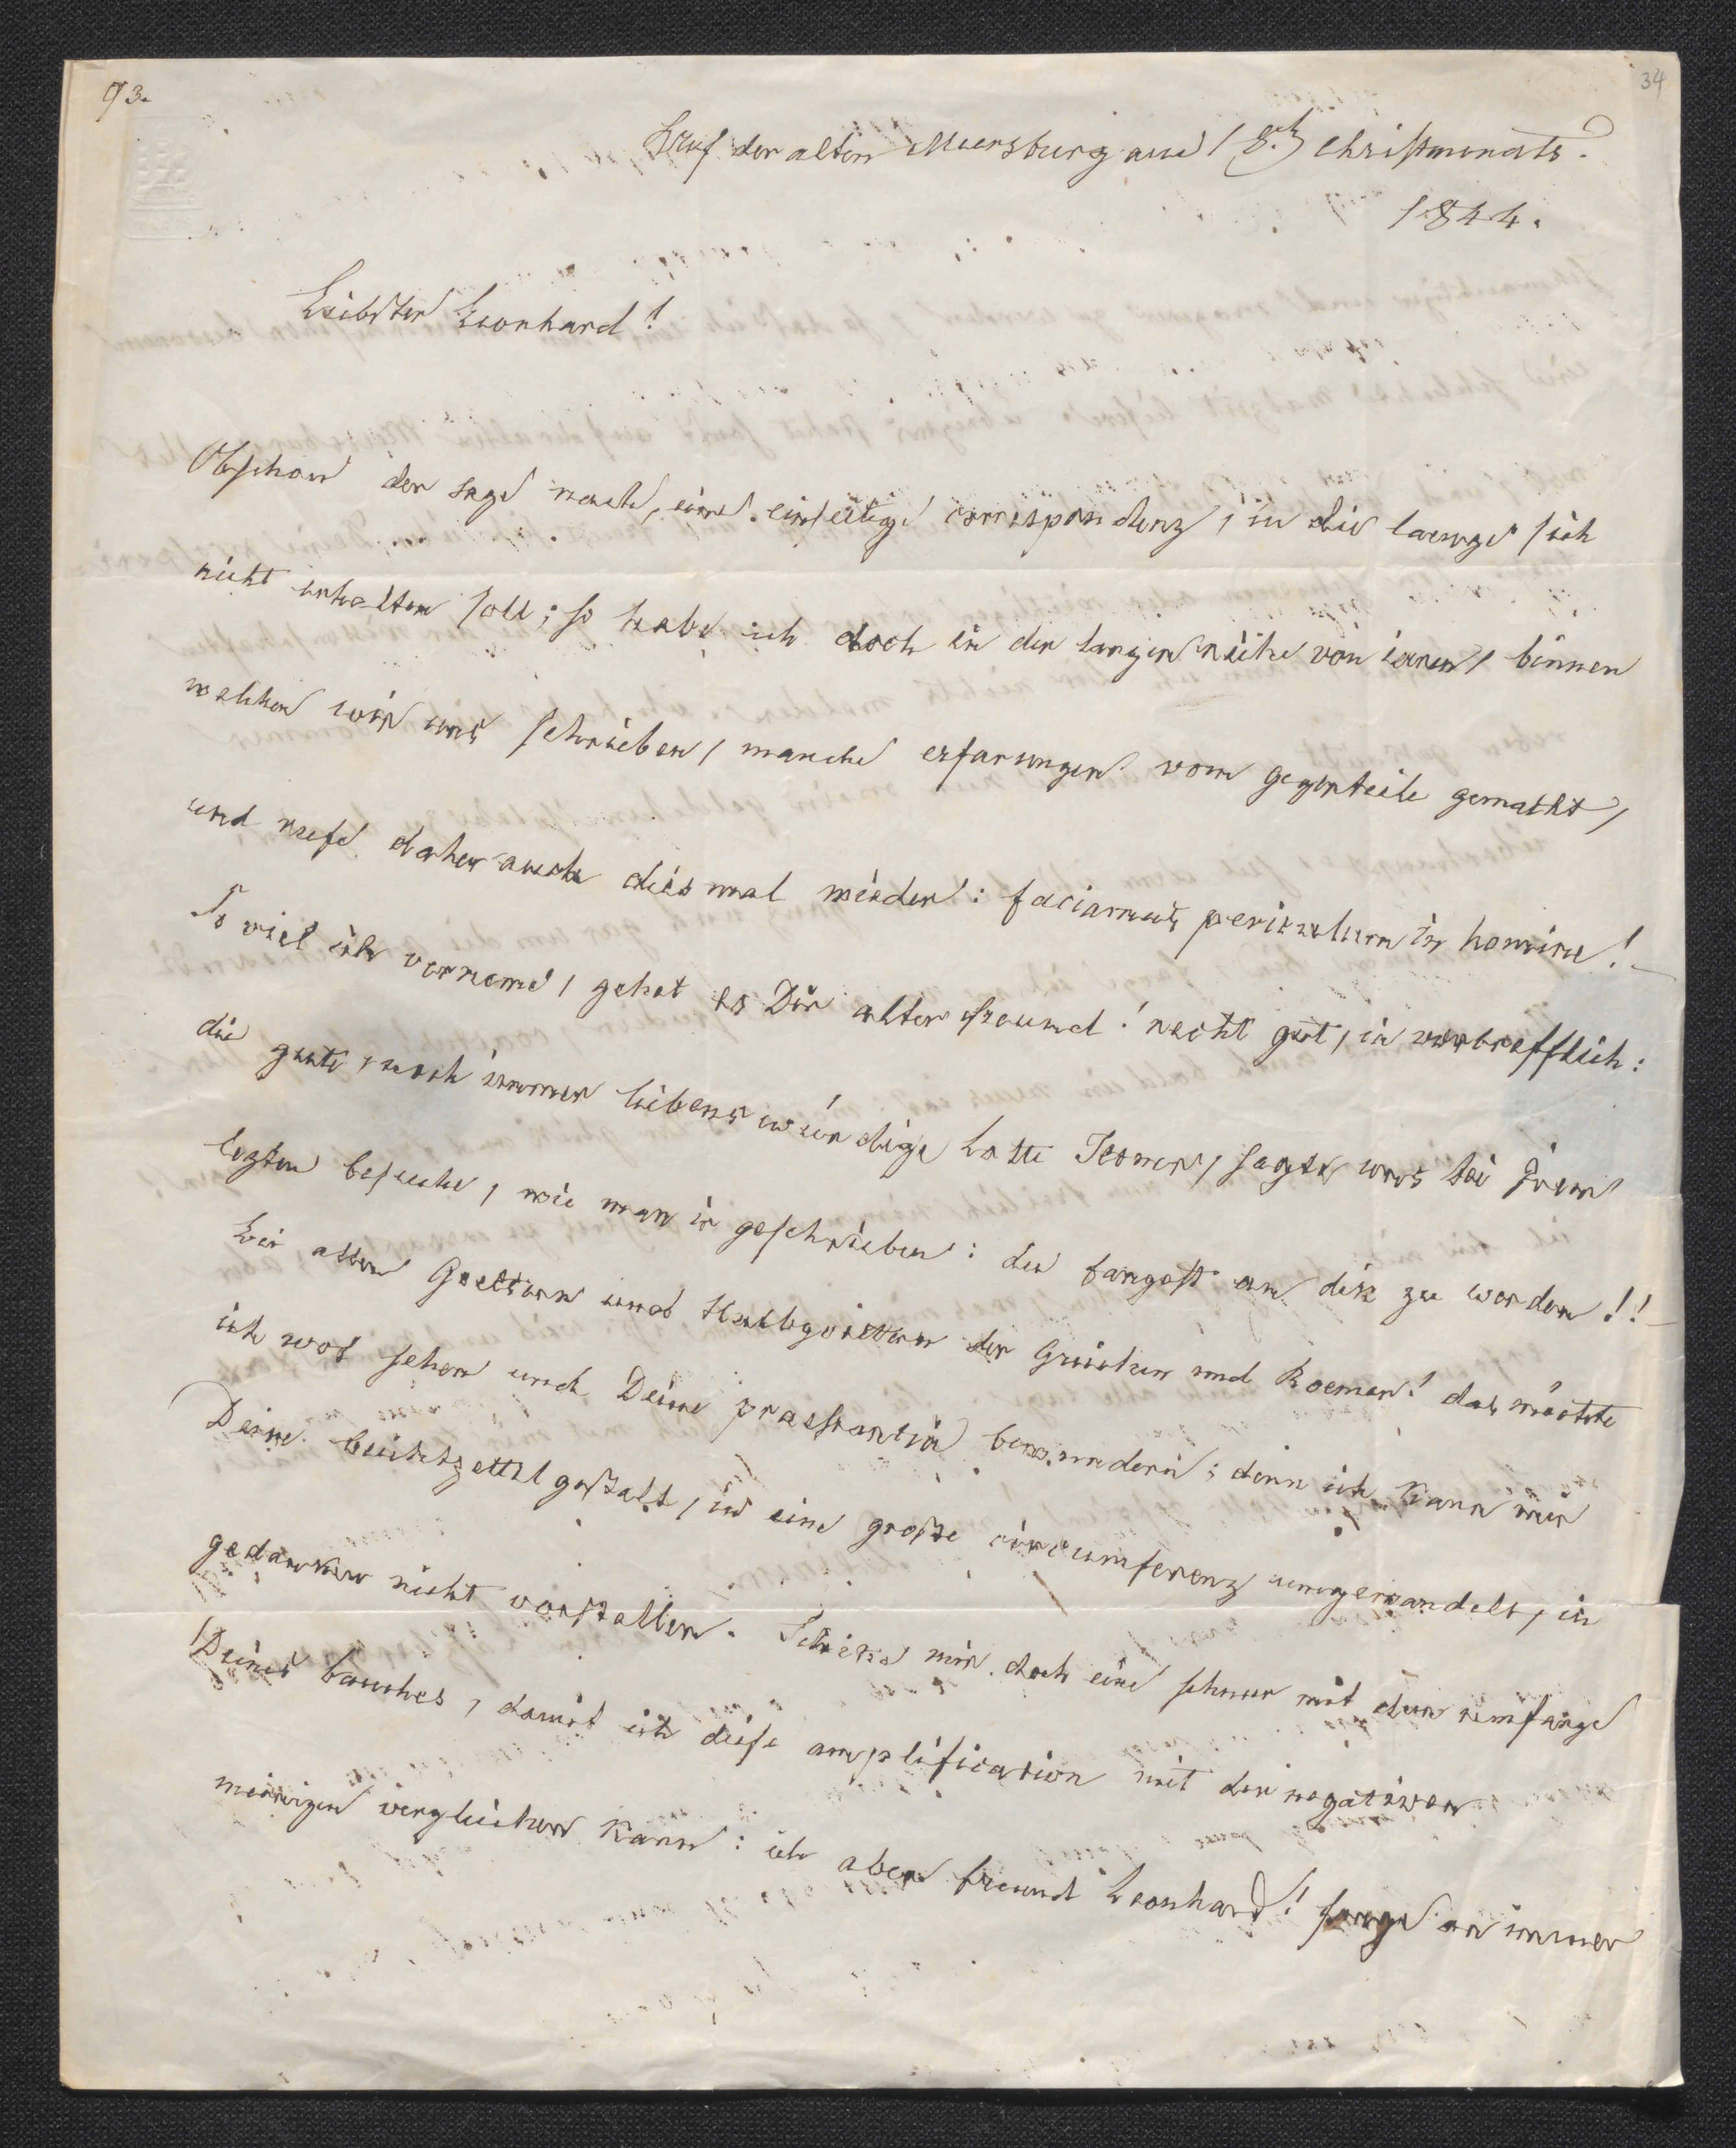 93.
34
Auf der alten Meersburg am 18.t Christmonats.
1844.
Liebster Leonhard!
Obschon der sage nach, eine einseitige correspondenz, in die laenge sich
nicht erhalten soll; so habe ich doch in der langen reihe von iaren, binnen
welchen wir uns schrieben, manche erfarungen vom gegenteile gemacht,
und rufe daher auch diesmal wieder: faciamus periculum in homine! –
So viel ich verneme, gehet es Dir alter freund! recht gut, ia vortrefflich:
die gute, noch immer liebenswürdige Lotte Ittner, sagte uns bei irem
lezten besuche, wie man ir geschrieben: du fangest an dik zu werden!! –
bei allen Goettern und Halbgoettern der Griechen und Roemer! das moechte
ich wol sehen und Deine praestantia bewundern; denn ich kann mir
Deine beichtzettelgestalt, in eine große circumferenz umgewandelt, in
gedanken nicht vorstellen. Schike mir doch eine schnur mit dem umfange
Deines bauches, damit ich diese amplification mit der negativen
meinigen vergleichen kann: ich aber freund Leonhard! fange an immer